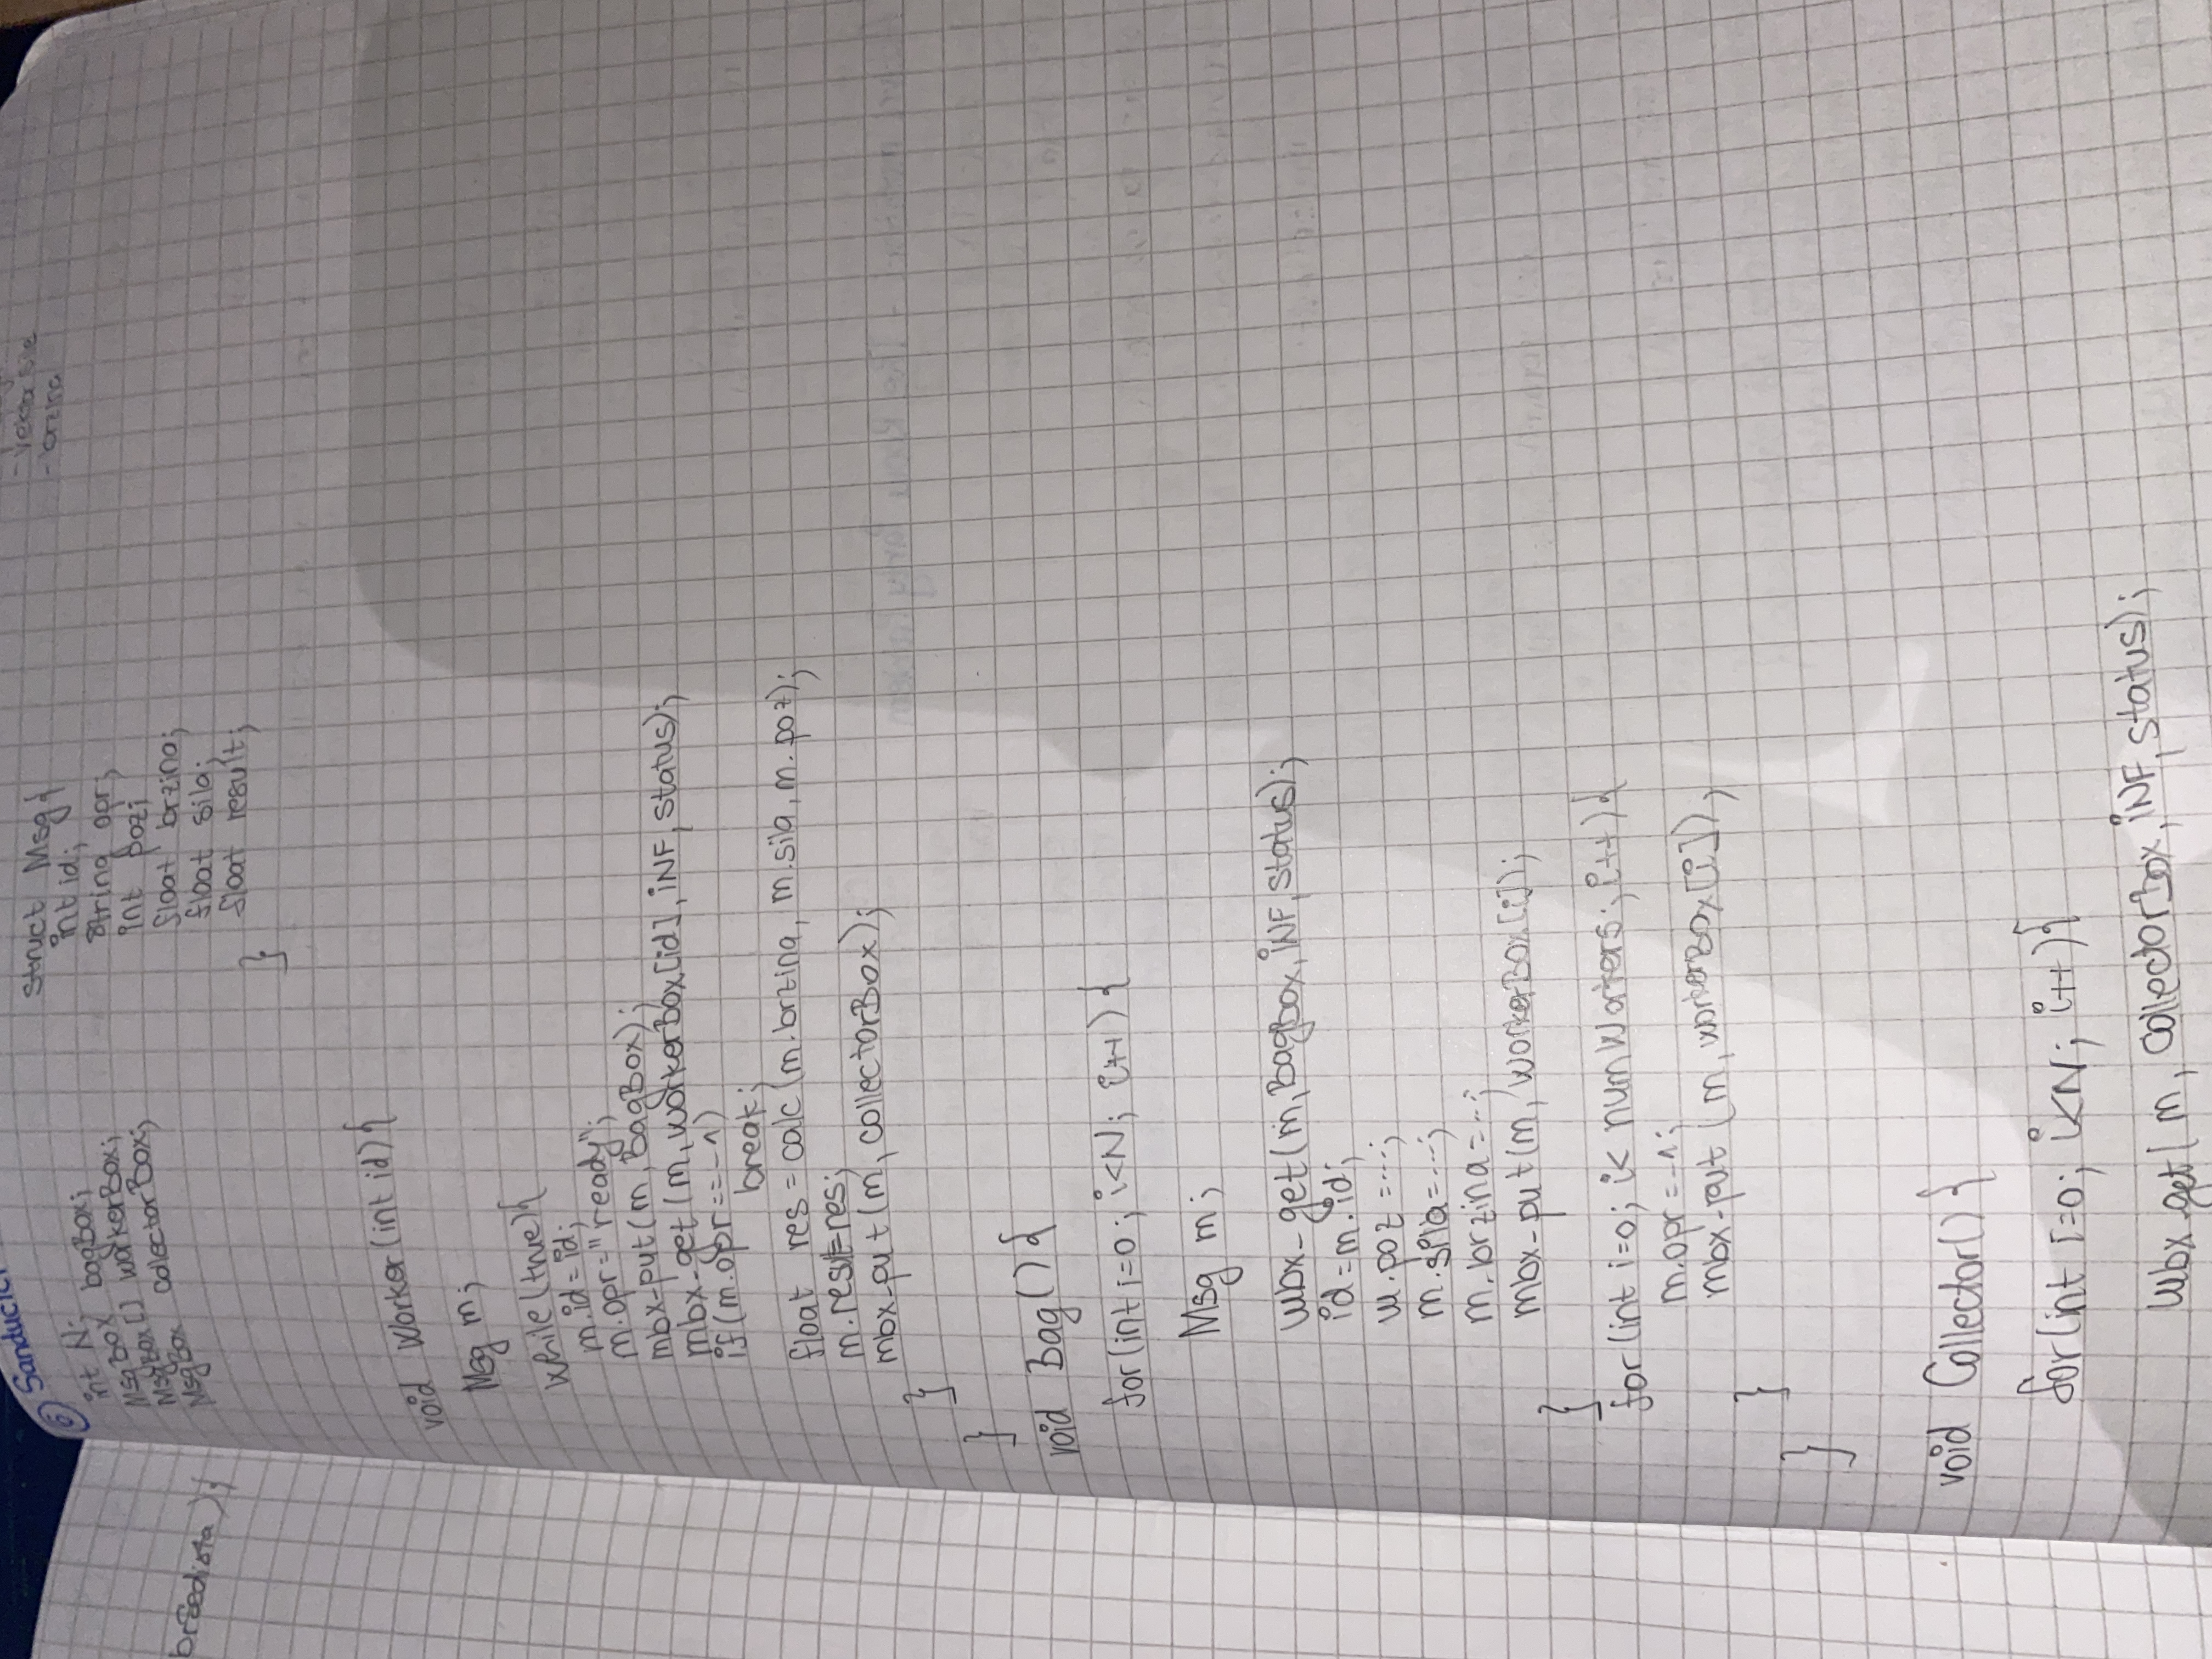 6
int N;
MsgBox bagBox;
MsgBox[] workerBox;
MsgBox collectorBox;
struct Msg{
int id;
string opr;
int poz;
float brzina;
float sila;
float result;
}
- brzina
void Worker(int id){
Msg m;
while(true){
m.id=id;
m.opr="ready";
mbx-put(m, BagBox);
mbx-get(m, workerBox[id], iNF, status);
if(m.opr==-1)
break;
float res = calc(m.brzina, m.sila, m.poz);
m.result=res;
mbx-put(m, collectorBox);
}
}
void Bag(){
for(int i=0; i<N; i++){
Msg m;
mbx-get(m, BagBox, iNF, status);
id=m.id;
m.poz=...;
m.sila=...;
m.brzina=...;
mbx-put(m, workerBox[i]);
}
for(int i=0; i< numWorkers; i++){
m.opr=-1;
mbx-put(m, workerBox[i]);
}
}
void Collector(){
for(int i=0; i<N; i++){
mbx-get(m, collectorBox, iNF, status);